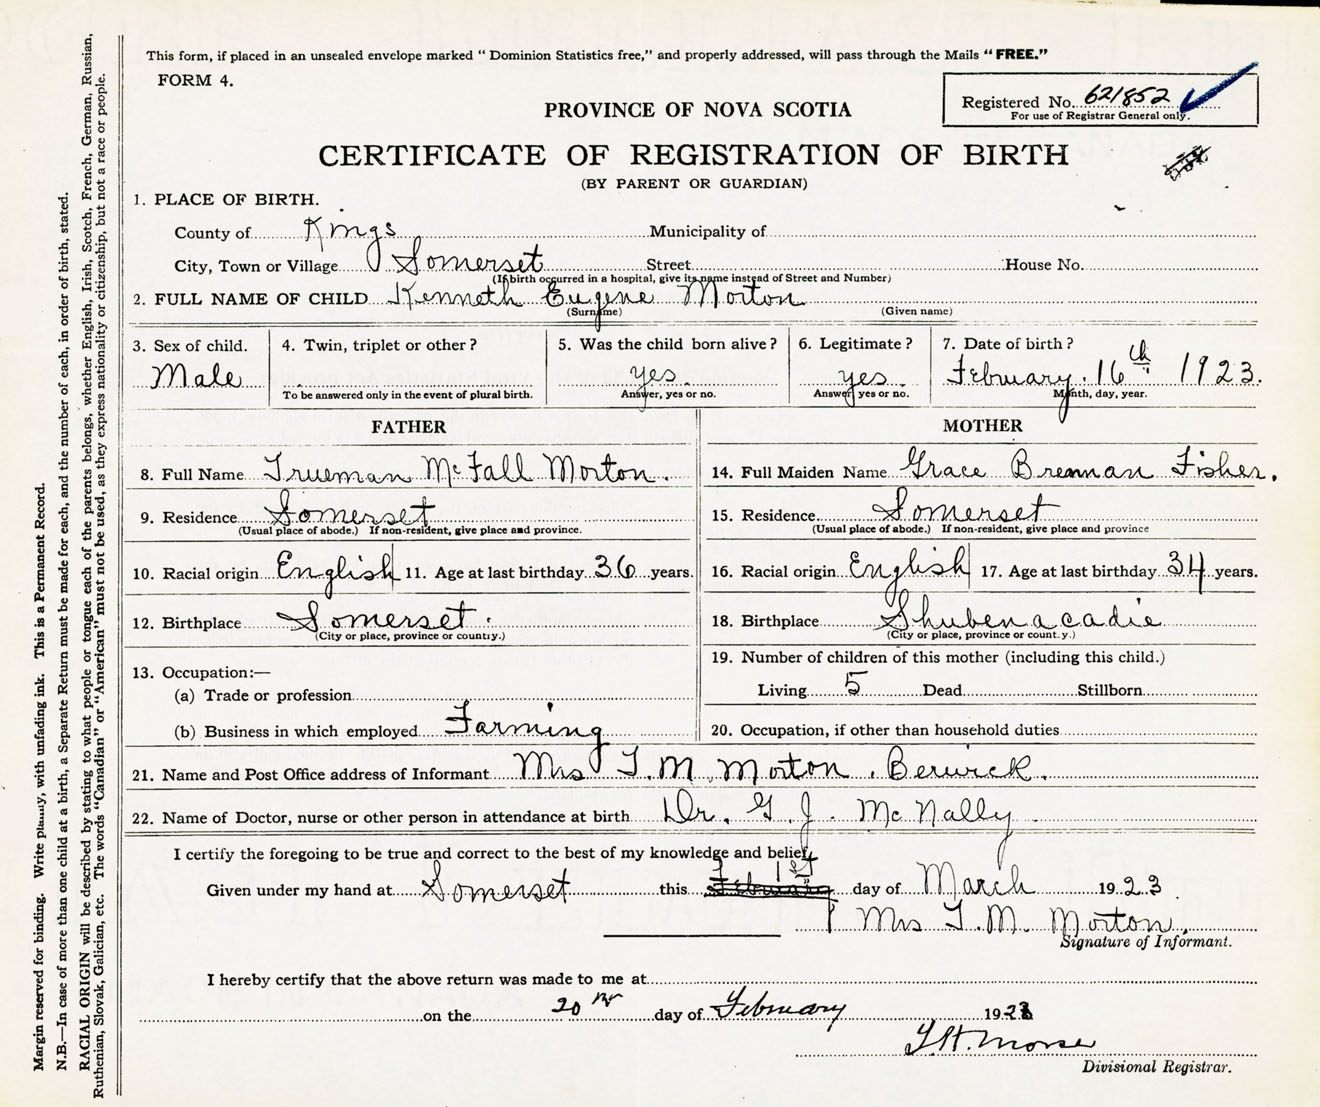 This form, if placed in an unsealed envelope marked " Dominion Statistics free," and properly addressed, will pass through the Mails " FREE."
FORM 4.
Registered No. 621852
For use of Registrar General only.
PROVINCE OF NOVA SCOTIA
CERTIFICATE OF REGISTRATION OF BIRTH
(BY PARENT OR GUARDIAN)
1. PLACE OF BIRTH.
County of Kings Municipality of
City, Town or Village Somerset Street House No.
(If birth occurred in a hospital, give its name instead of Street and Number)
2. FULL NAME OF CHILD Kenneth Eugene Morton
(Surname) (Given name)
3. Sex of child. 4. Twin, triplet or other ? 5. Was the child born alive ? 6. Legitimate ? 7. Date of birth ?
Male yes. yes. February. 16th 1923.
To be answered only in the event of plural birth. Answer, yes or no. Answer, yes or no. Month, day, year.
FATHER MOTHER
8. Full Name Trueman McFall Morton. 14. Full Maiden Name Grace Brennan Fisher.
9. Residence Somerset 15. Residence Somerset
(Usual place of abode.) If non-resident, give place and province. (Usual place of abode.) If non-resident, give place and province
10. Racial origin English 11. Age at last birthday 36 years. 16. Racial origin English 17. Age at last birthday 34 years.
12. Birthplace Somerset. 18. Birthplace Shubenacadie
(City or place, province or country.) (City or place, province or country.)
13. Occupation:— 19. Number of children of this mother (including this child.)
(a) Trade or profession Living 5 Dead Stillborn
(b) Business in which employed Farming 20. Occupation, if other than household duties
21. Name and Post Office address of Informant Mrs T. M. Morton. Berwick.
22. Name of Doctor, nurse or other person in attendance at birth Dr. G. J. McNally
I certify the foregoing to be true and correct to the best of my knowledge and belief,
Given under my hand at Somerset this 1st day of March 1923
Mrs T. M. Morton.
Signature of Informant.
I hereby certify that the above return was made to me at
on the 20 day of February 192
Divisional Registrar.
Margin reserved for binding. Write plainly, with unfading ink. This is a Permanent Record.
N.B.—In case of more than one child at a birth, a Separate Return must be made for each, and the number of each, in order of birth, stated.
RACIAL ORIGIN will be described by stating to what people or tongue each of the parents belongs, whether English, Irish, Scotch, French, German, Russian,
Ruthenian, Slovak, Galician, etc. The words "Canadian" or "American" must not be used, as they express nationality or citizenship, but not a race or people.